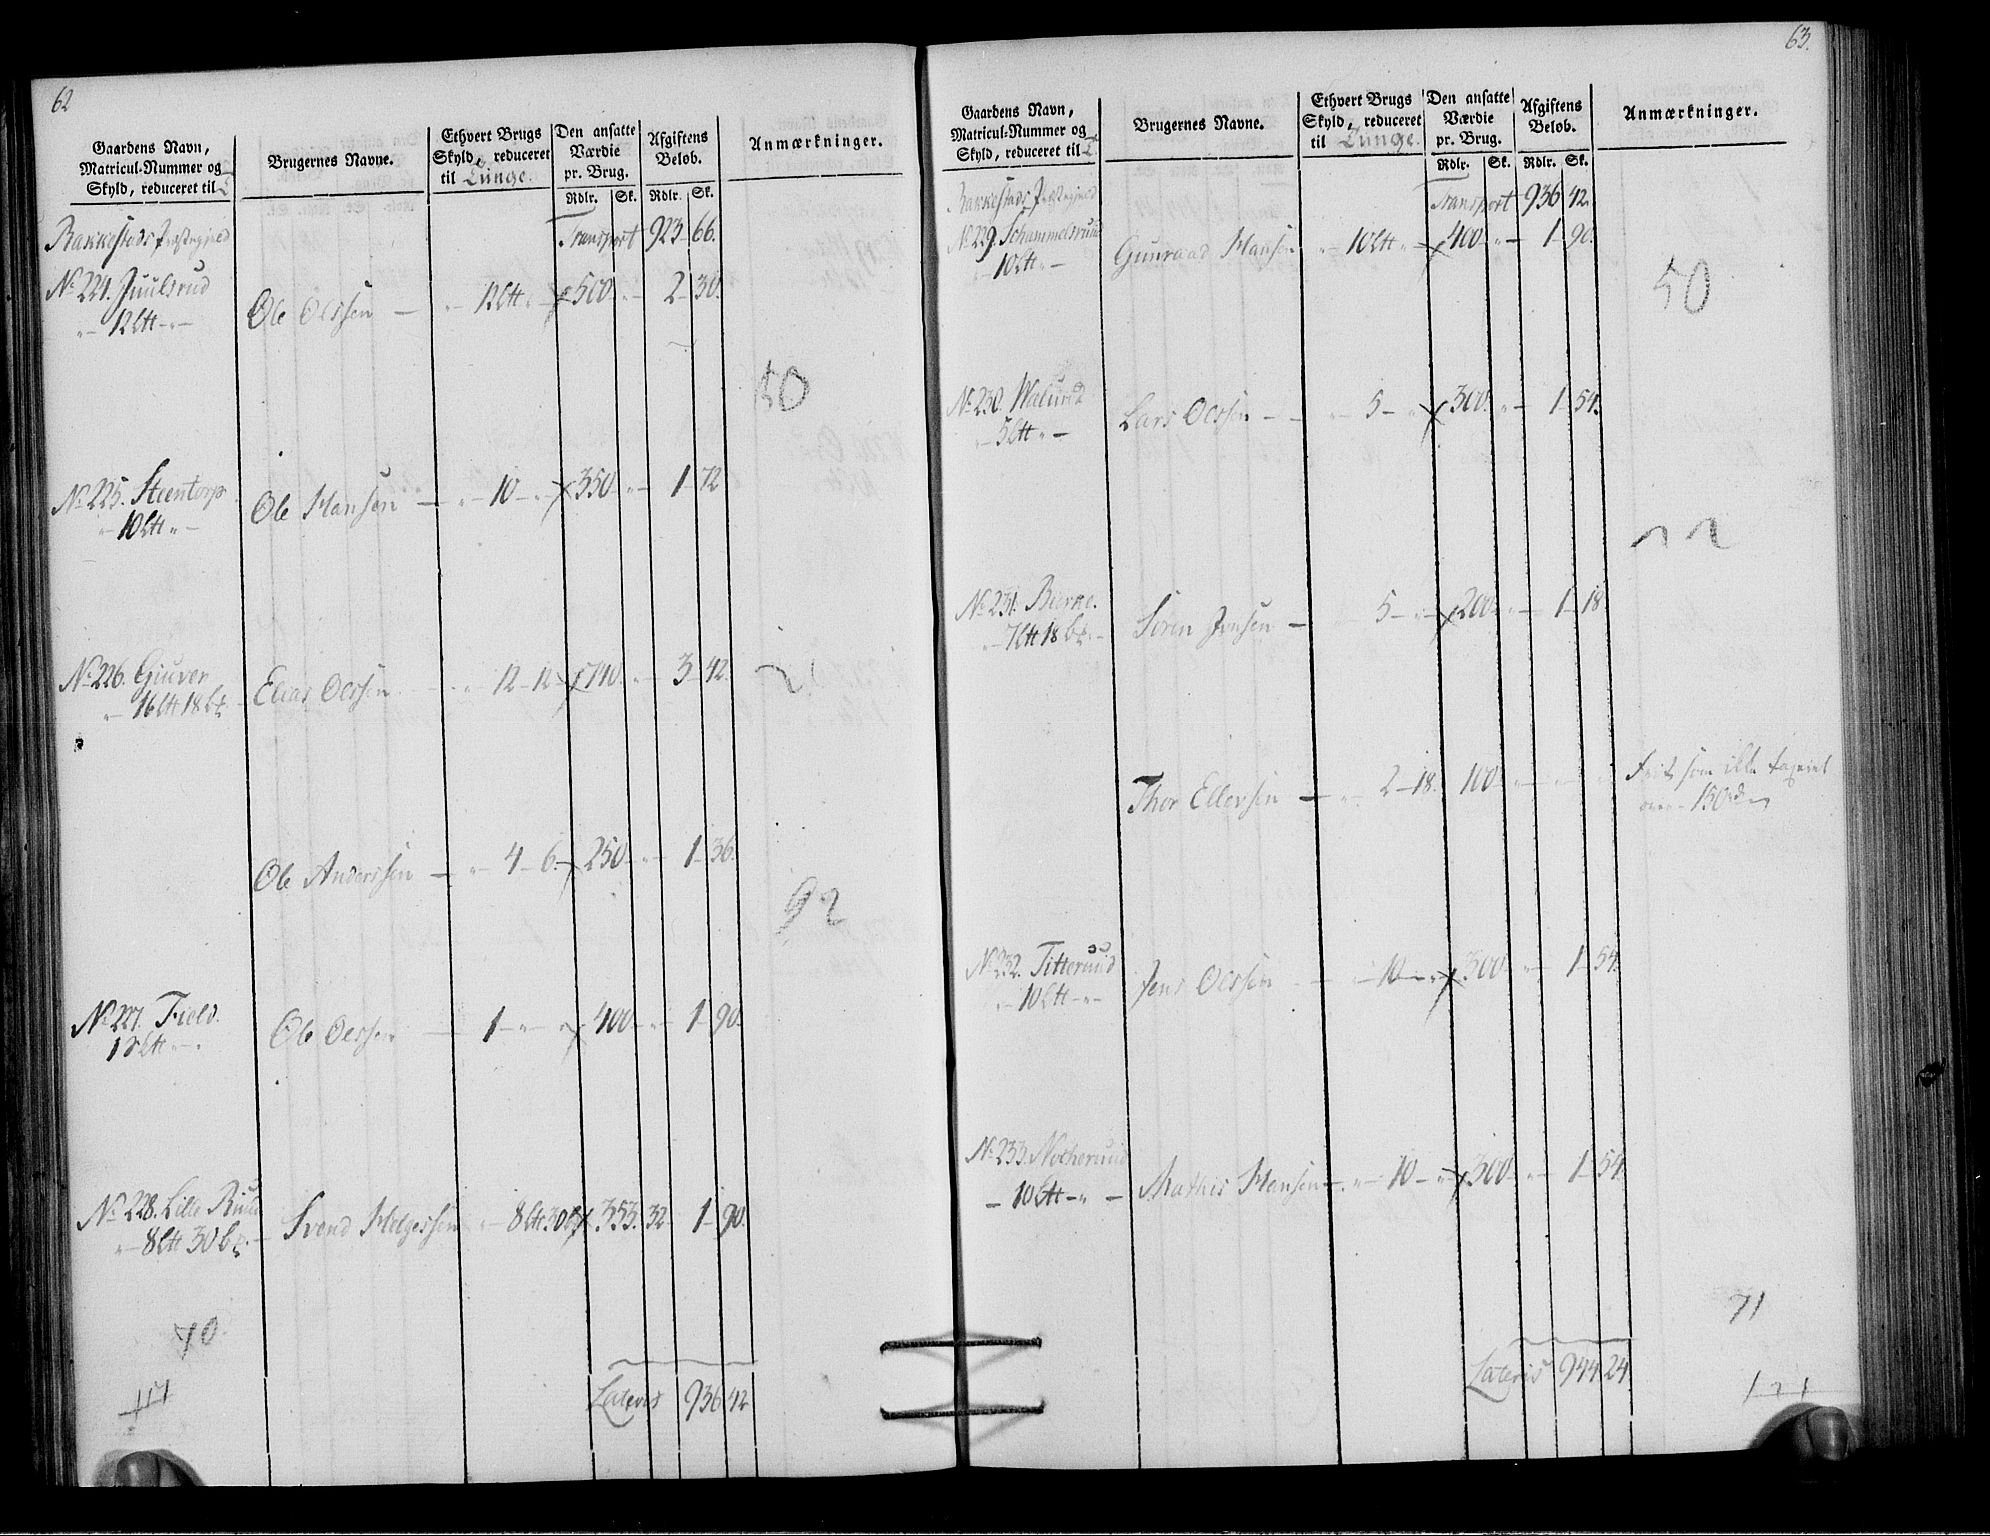 62
Gaardens Navn,
Matricul-Nummer og
Skyld, reduceret til
Brugernes Navne.
Ethvert Brugs
Skyld, reduceret
til Tunge.
Den ansatte
Værdie
pr. Brug.
Rdlr. Sk.
Afgiftens
Beløb.
Rdlr. Sk.
Anmærkninger.
Rakkestads Præstegield Transport 923 66.
No 224. Juulsrud
" 12 ltt " Ole Olssen 12 ltt " 500 " 2 30.
50
No 225. Steentorp
" 10 ltt " Ole Hansen " 10 " 350 " 1 72
No 226. Giuver
" 16 ltt 18 bz. Elias Olssen " 12 12 740. " 3 42.
Ole Anderssen " 4 6. 250 " 1 36.
92
No 227. Field.
Ole Olssen 1 " " 400 " 1 90.
No 228. Lille Ruud
" 8 ltt 30 bz. Svend Helgessen " 8 ltt 30 bz 353. 32 1 90.
70
Lateris 936 42
63.
Gaardens Navn,
Matricul-Nummer og
Skyld, reduceret til
Brugernes Navne.
Ethvert Brugs
Skyld, reduceret
til Tunge.
Den ansatte
Værdie
pr. Brug.
Rdlr. Sk.
Afgiftens
Beløb.
Rdlr. Sk.
Anmærkninger.
Rakkestads Præstegield Transport 936 42.
No 229. Schammelsruud
" 10 ltt " Gunraad Hansen " 10 ltt " 400 " 1 90.
50
No 230. Walund
" 5 ltt " Lars Olssen " 5 " 300. " 1 54.
No 231. Bierke.
" 7 ltt 18 bz. Søren Jensen 5 " 200 " 1 18
Thor Ellevsen " 2 18. 100 " Frit, som ikke taxeret
over 150 rd
No 232. Titterud
" 10 ltt " Jens Olssen " 10 " 300 " 1 54.
No 233. Notherud
10 ltt " Mathis Hansen " 10 " 300 " 1 54.
71
Lateris 944 24